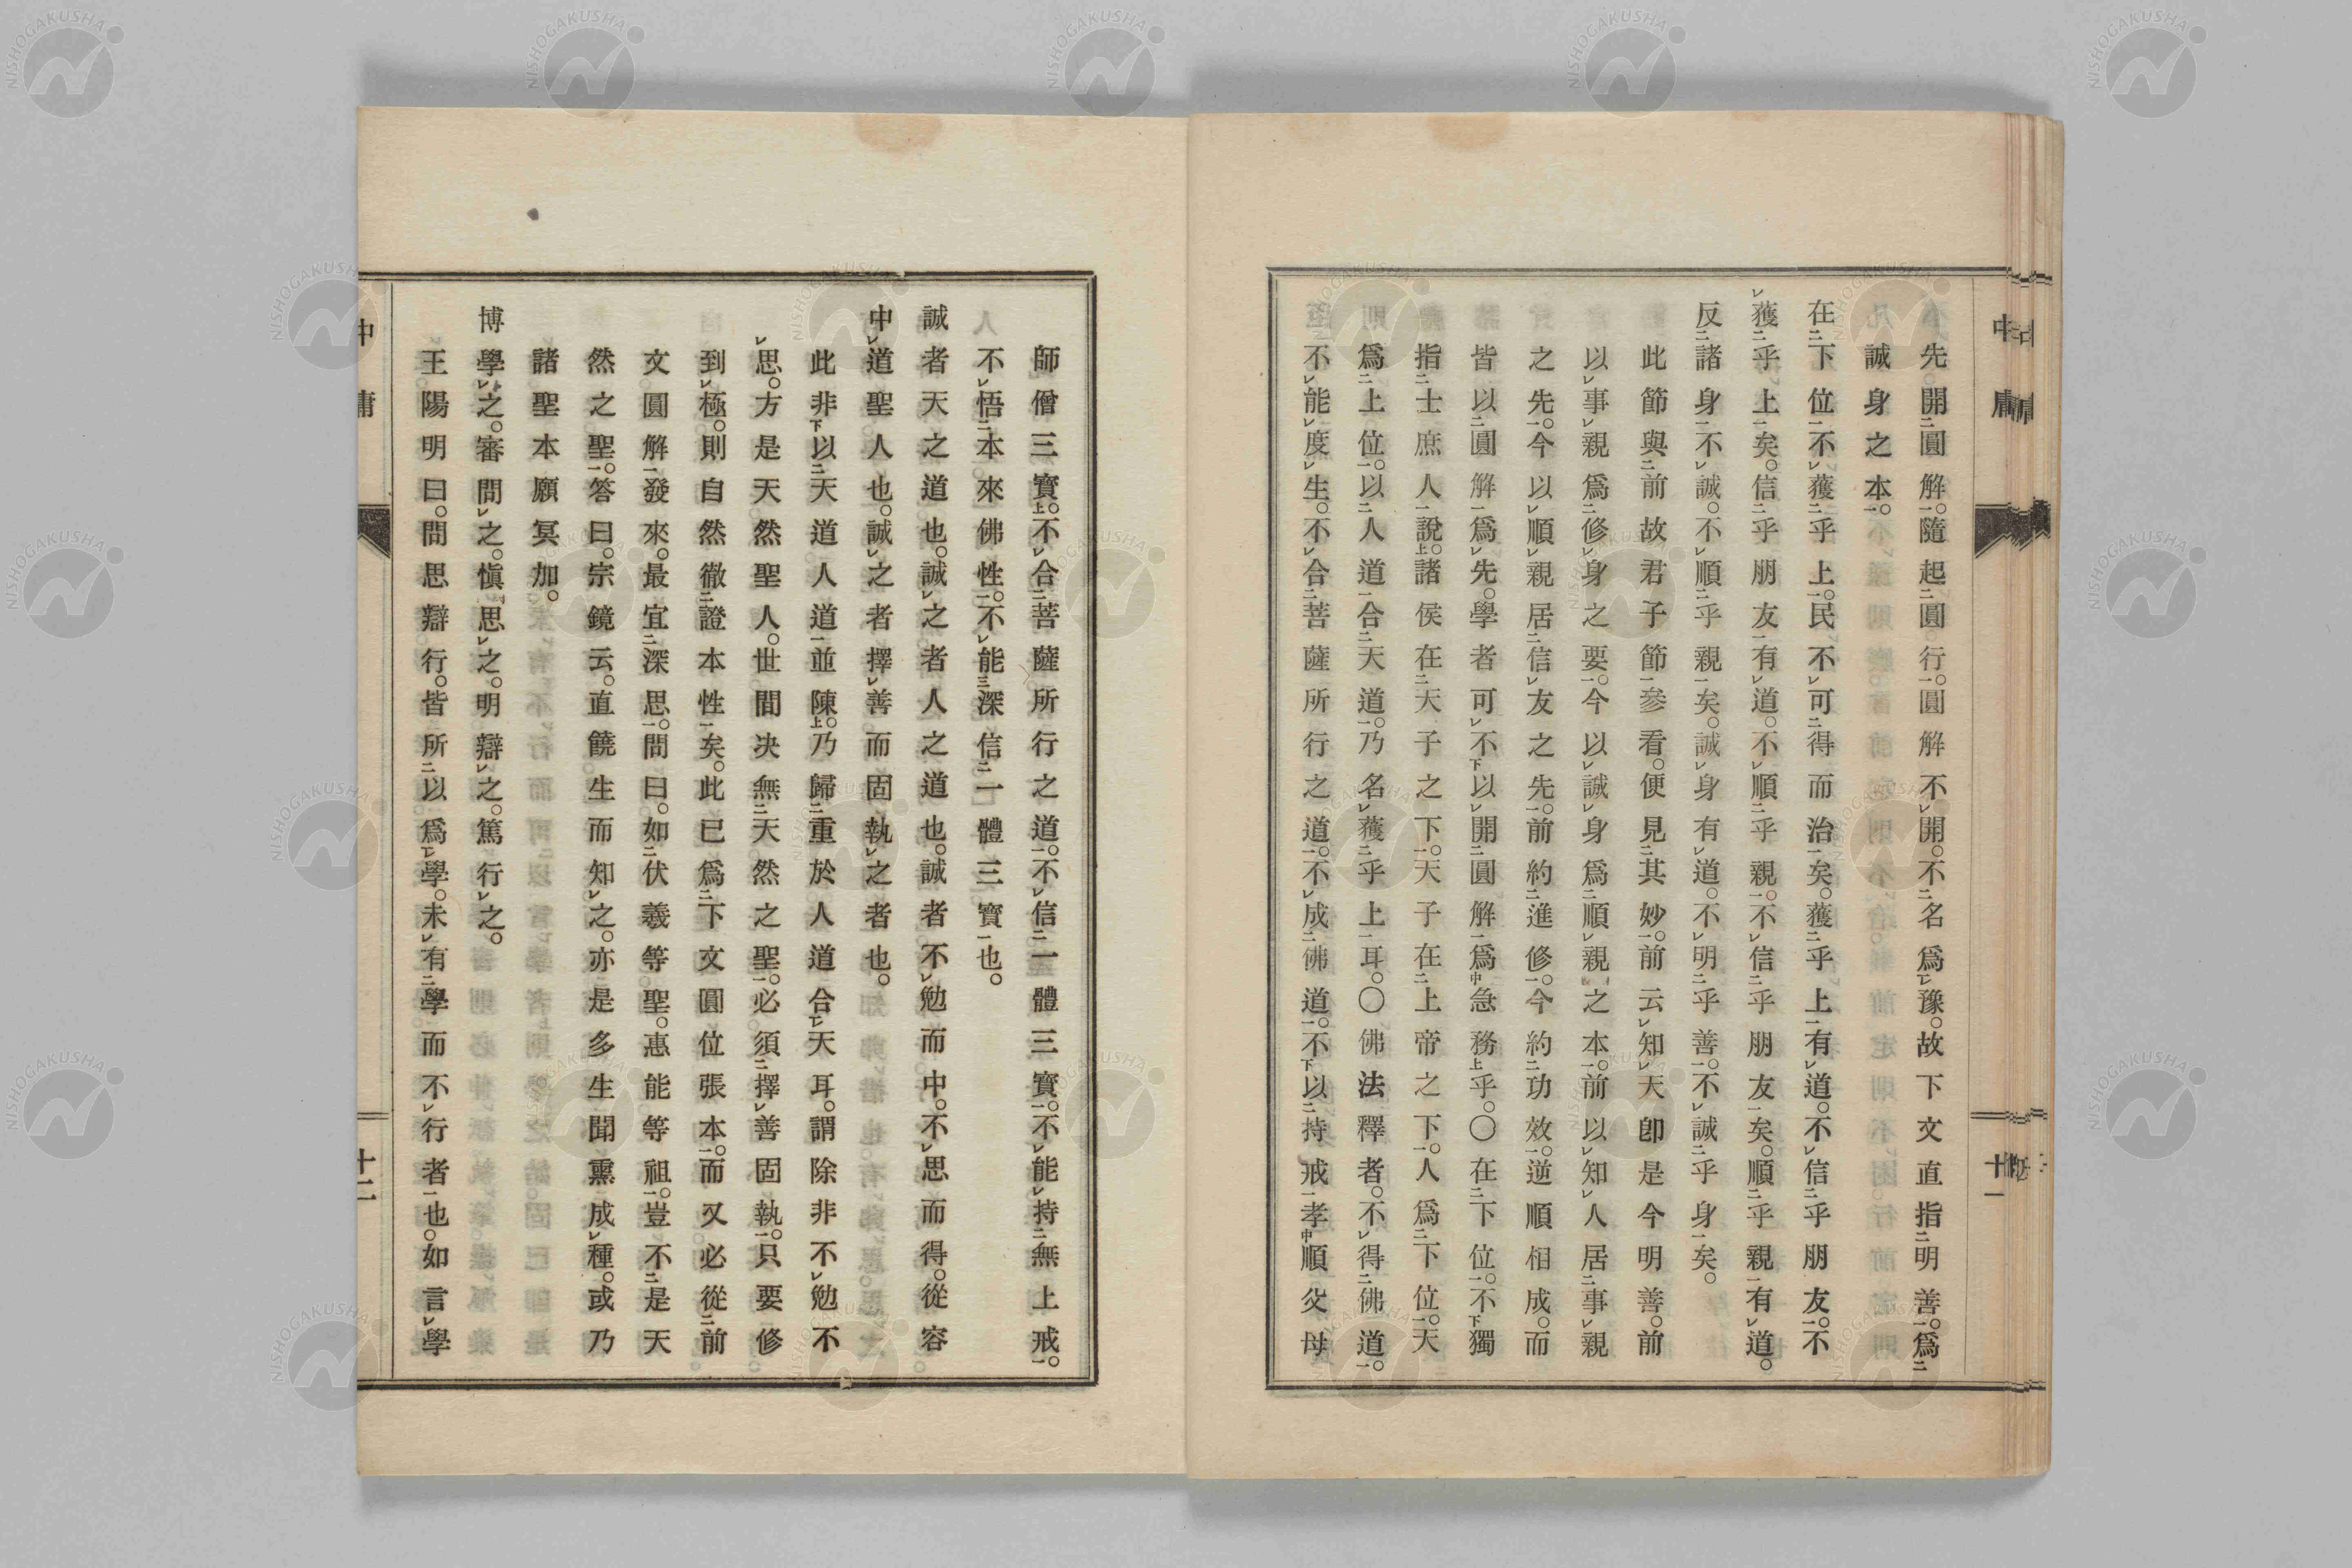 先開圓解。隨起圓行。圓解不開。不名爲豫。故下文直指明善。爲
誠身之本。
在下位不獲乎上。民不可得而治矣。獲乎上有道。不信乎朋友。不
獲乎上矣。信乎朋友有道。不順乎親。不信乎朋友矣。順乎親有道。
反諸身不誠。不順乎親矣。誠身有道。不明乎善。不誠乎身矣。
此節與前故君子節參看。便見其妙。前云知天卽是今明善。前
以事親爲修身之要。今以誠身爲順親之本。前以知人居事親
之先。今以順親居信友之先。前約進修。今約功效。逆順相成。而
皆以圓解爲先。學者可不以開圓解爲急務乎。〇在下位。不獨
指士庶人說。諸侯在天子之下。天子在上帝之下。人爲下位。天
爲上位。以人道合天道。乃名獲乎上耳。〇佛法釋者。不得佛道。
不能度生。不合菩薩所行之道。不成佛道。不以持戒孝順父母
中庸
十一
師僧三寶。不合菩薩所行之道。不信一體三寶。不能持無上戒。
不悟本來佛性。不能深信一體三寶也。
誠者天之道也。誠之者人之道也。誠者不勉而中。不思而得。從容
中道聖人也。誠之者擇善而固執之者也。
此非以天道人道並陳。乃歸重於人道合天耳。謂除非不勉不
思。方是天然聖人。世間決無天然之聖。必須擇善固執。只要修
到極。則自然徹證本性矣。此已爲下文圓位張本。而又必從前
文圓解發來。最宜深思。問曰。如伏羲等聖。惠能等祖。豈不是天
然之聖。答曰。宗鏡云。直饒生而知之。亦是多生聞熏成種。或乃
諸聖本願冥加。
博學之。審問之。愼思之。明辯之。篤行之。
王陽明曰。問思辯行。皆所以爲學。未有學而不行者也。如言學
中庸
十二
NISHOGAKUSHA